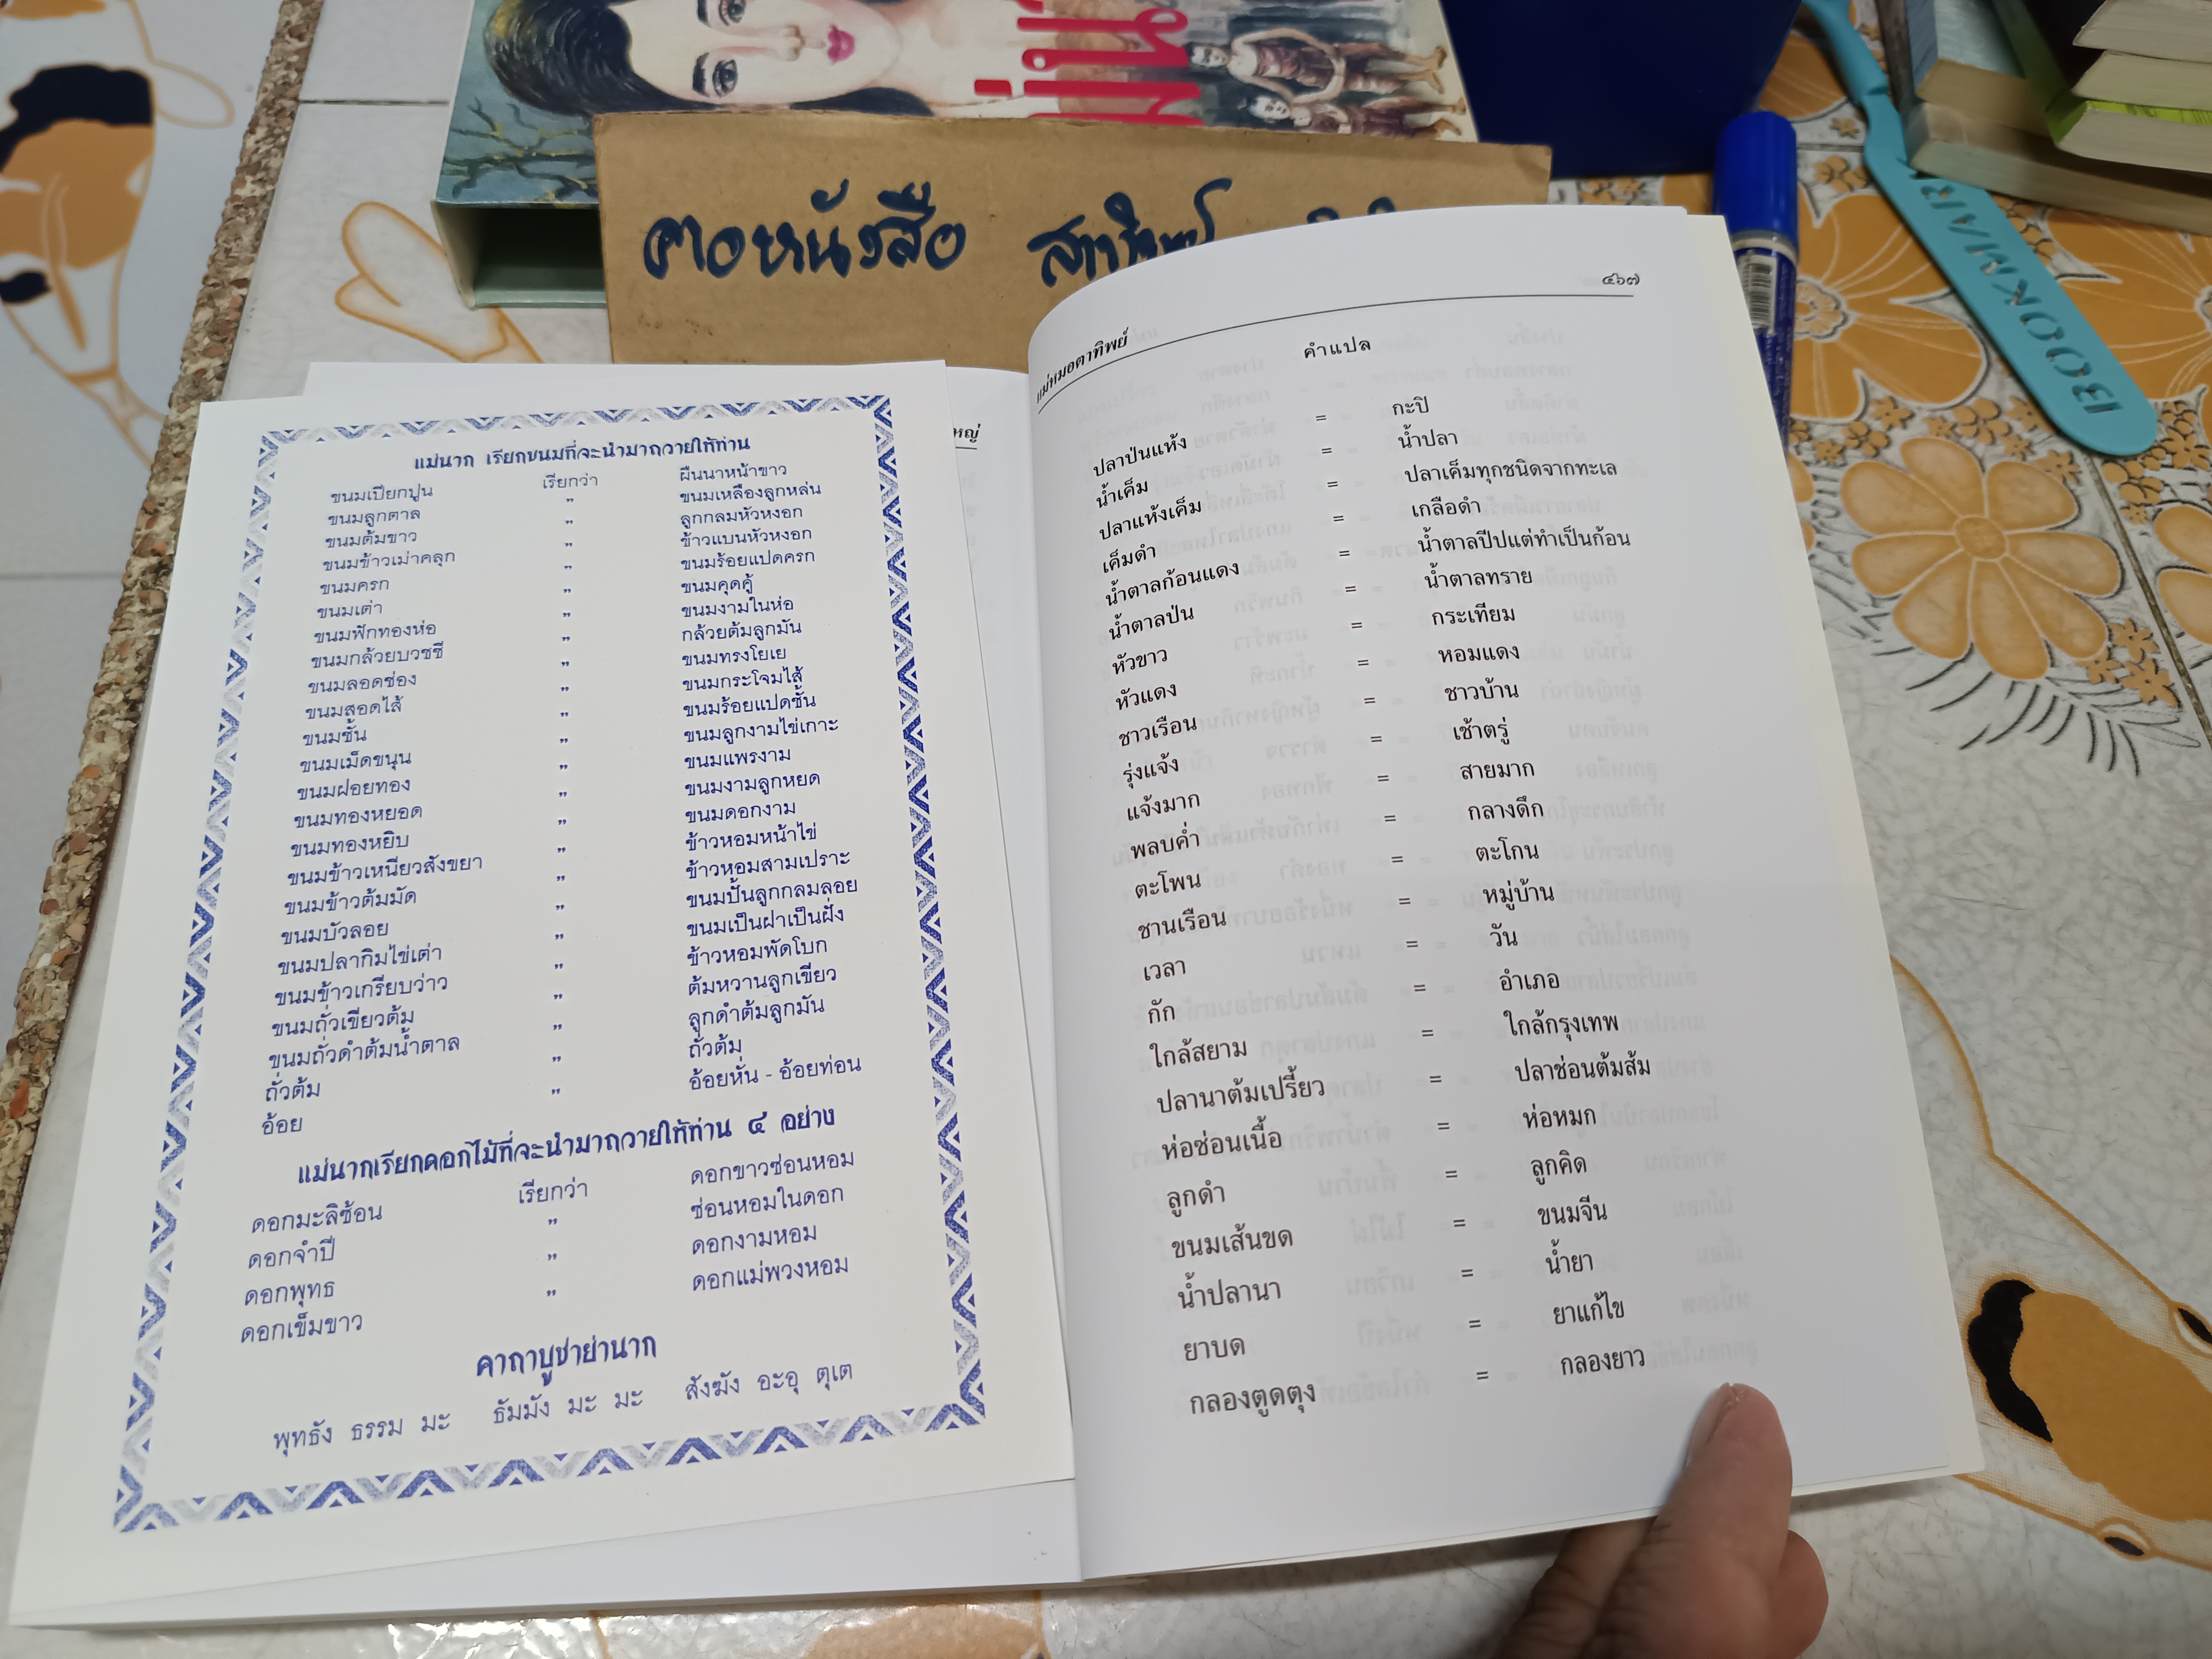 คาถหนังสือ
BOOKMARK
หญ่
แม่นาก เรียกขนมที่จะนำมาถวายให้ท่าน
ขนมเปียกปูน เรียกว่า ผืนนาหน้าขาว
ขนมลูกตาล ,, ขนมเหลืองลูกหล่น
ขนมต้มขาว ,, ลูกกลมหัวหงอก
ขนมข้าวเม่าคลุก ,, ข้าวแบนหัวหงอก
ขนมครก ,, ขนมร้อยแปดครก
ขนมเต่า ,, ขนมคุดคู้
ขนมฟักทองห่อ ,, ขนมงามในห่อ
ขนมกล้วยบวชชี ,, กล้วยต้มลูกมัน
ขนมลอดช่อง ,, ขนมทรงโยเย
ขนมสอดไส้ ,, ขนมกระโจมไส้
ขนมชั้น ,, ขนมร้อยแปดชั้น
ขนมเม็ดขนุน ,, ขนมลูกงามไข่เกาะ
ขนมฝอยทอง ,, ขนมแพรงาม
ขนมทองหยอด ,, ขนมงามลูกหยด
ขนมทองหยิบ ,, ขนมดอกงาม
ขนมข้าวเหนียวสังขยา ,, ข้าวหอมหน้าไข่
ขนมข้าวต้มมัด ,, ข้าวหอมสามเปราะ
ขนมบัวลอย ,, ขนมปั้นลูกกลมลอย
ขนมปลากิมไข่เต่า ,, ขนมเป็นฝาเป็นฝั่ง
ขนมข้าวเกรียบว่าว ,, ข้าวหอมพัดโบก
ขนมถั่วเขียวต้ม ,, ต้มหวานลูกเขียว
ขนมถั่วดำต้มน้ำตาล ,, ลูกดำต้มลูกมัน
ถั่วต้ม ,, ถั่วต้ม
อ้อย ,, อ้อยหั่น - อ้อยท่อน
แม่นากเรียกดอกไม้ที่จะนำมาถวายให้ท่าน ๔ อย่าง
ดอกมะลิซ้อน เรียกว่า ดอกขาวซ่อนหอม
ดอกจำปี ,, ซ่อนหอมในดอก
ดอกพุทธ ,, ดอกงามหอม
ดอกเข็มขาว ,, ดอกแม่พวงหอม
คาถาบูชาย่านาก
พุทธัง ธรรม มะ ธัมมัง มะ มะ สังฆัง อะอุ ตุเต
แม่หมอตาทิพย์ ๔๖๗
คำแปล
ปลาป่นแห้ง = กะปิ
น้ำเค็ม = น้ำปลา
ปลาแห้งเค็ม = ปลาเค็มทุกชนิดจากทะเล
เค็มดำ = เกลือดำ
น้ำตาลก้อนแดง = น้ำตาลปีปแต่ทำเป็นก้อน
น้ำตาลป่น = น้ำตาลทราย
หัวขาว = กระเทียม
หัวแดง = หอมแดง
ชาวเรือน = ชาวบ้าน
รุ่งแจ้ง = เช้าตรู่
แจ้งมาก = สายมาก
พลบค่ำ = กลางดึก
ตะโพน = ตะโกน
ชานเรือน = หมู่บ้าน
เวลา = วัน
กัก = อำเภอ
ใกล้สยาม = ใกล้กรุงเทพ
ปลานาต้มเปรี้ยว = ปลาช่อนต้มส้ม
ห่อซ่อนเนื้อ = ห่อหมก
ลูกดำ = ลูกคิด
ขนมเส้นขด = ขนมจีน
น้ำปลานา = น้ำยา
ยาบด = ยาแก้ไข
กลองตูดตุง = กลองยาว